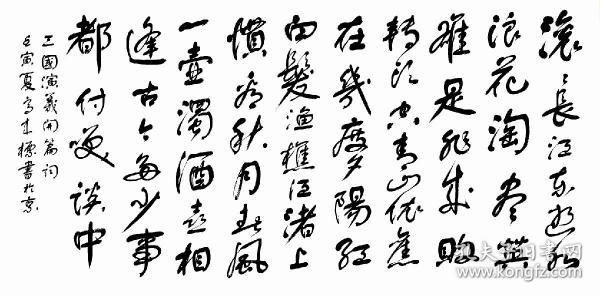 滚滚長江东逝水
浪花淘尽英
雄是非成败
转头空青山依旧
在幾度夕陽红
白髮渔樵江渚上
惯看秋月春風
一壶濁酒喜相
逢古今多少事
都付笑谈中
三國演義開篇词
壬寅夏標書於京
孔夫子旧书网
www.kongfz.com